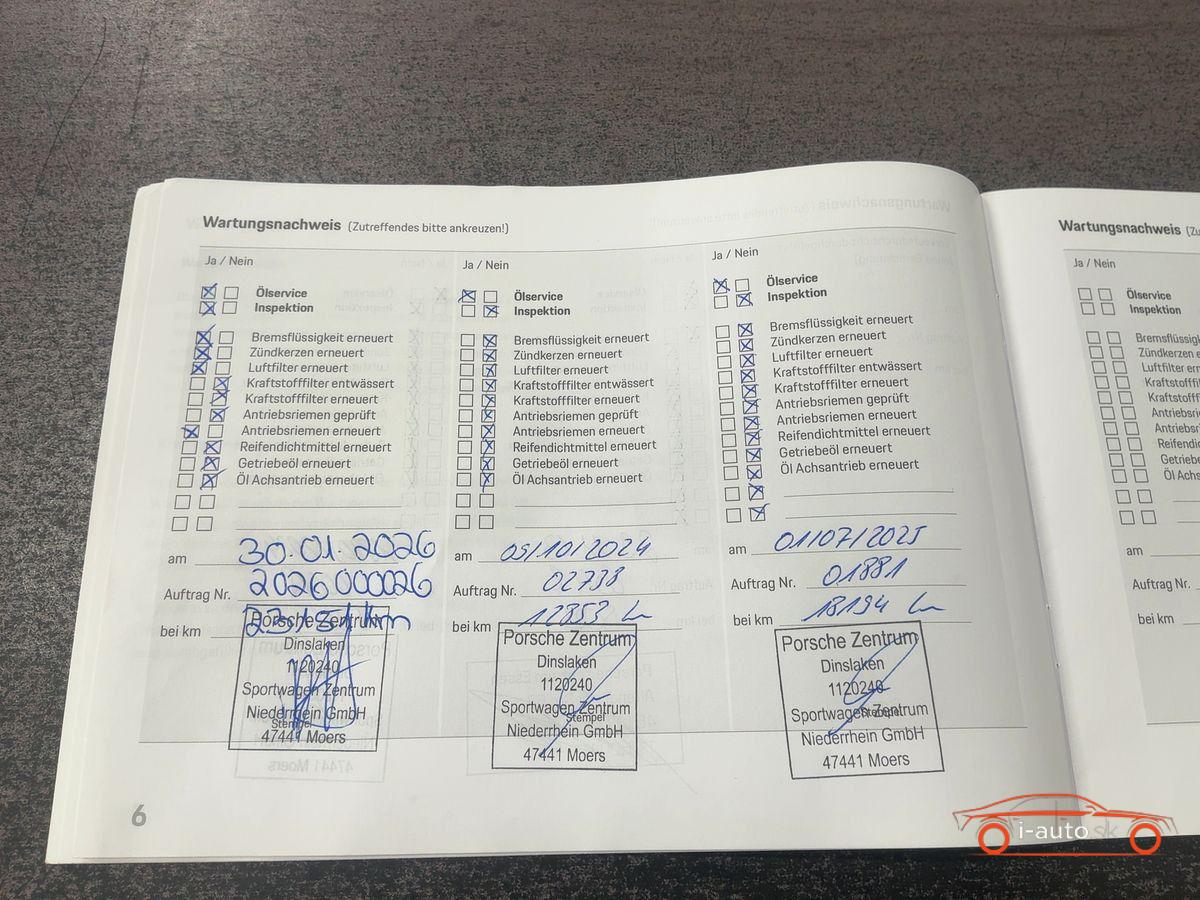 Wartungsnachweis (Zutreffendes bitte ankreuzen!)
Ja / Nein
Ölservice
Inspektion
Bremsflüssigkeit erneuert
Zündkerzen erneuert
Luftfilter erneuert
Kraftstofffilter entwässert
Kraftstofffilter erneuert
Antriebsriemen geprüft
Antriebsriemen erneuert
Reifendichtmittel erneuert
Getriebeöl erneuert
Öl Achsantrieb erneuert
am 30.01.2026
Auftrag Nr. 2026000026
bei km
Porsche Zentrum
Dinslaken
1120240
Sportwagen Zentrum
Niederrhein GmbH
Stempel
47441 Moers
Ja / Nein
Ölservice
Inspektion
Bremsflüssigkeit erneuert
Zündkerzen erneuert
Luftfilter erneuert
Kraftstofffilter entwässert
Kraftstofffilter erneuert
Antriebsriemen geprüft
Antriebsriemen erneuert
Reifendichtmittel erneuert
Getriebeöl erneuert
Öl Achsantrieb erneuert
am 05/10/2024
Auftrag Nr. 02738
bei km 12853 km
Porsche Zentrum
Dinslaken
1120240
Sportwagen Zentrum
Stempel
Niederrhein GmbH
47441 Moers
Ja / Nein
Ölservice
Inspektion
Bremsflüssigkeit erneuert
Zündkerzen erneuert
Luftfilter erneuert
Kraftstofffilter entwässert
Kraftstofffilter erneuert
Antriebsriemen geprüft
Antriebsriemen erneuert
Reifendichtmittel erneuert
Getriebeöl erneuert
Öl Achsantrieb erneuert
am 01/07/2025
Auftrag Nr. 01881
bei km 18194 km
Porsche Zentrum
Dinslaken
1120240
Sportwagen Zentrum
Stempel
Niederrhein GmbH
47441 Moers
6
Wartungsnachweis
Ja / Nein
Ölservice
Inspektion
am
Auftrag Nr.
bei km
i-auto.sk